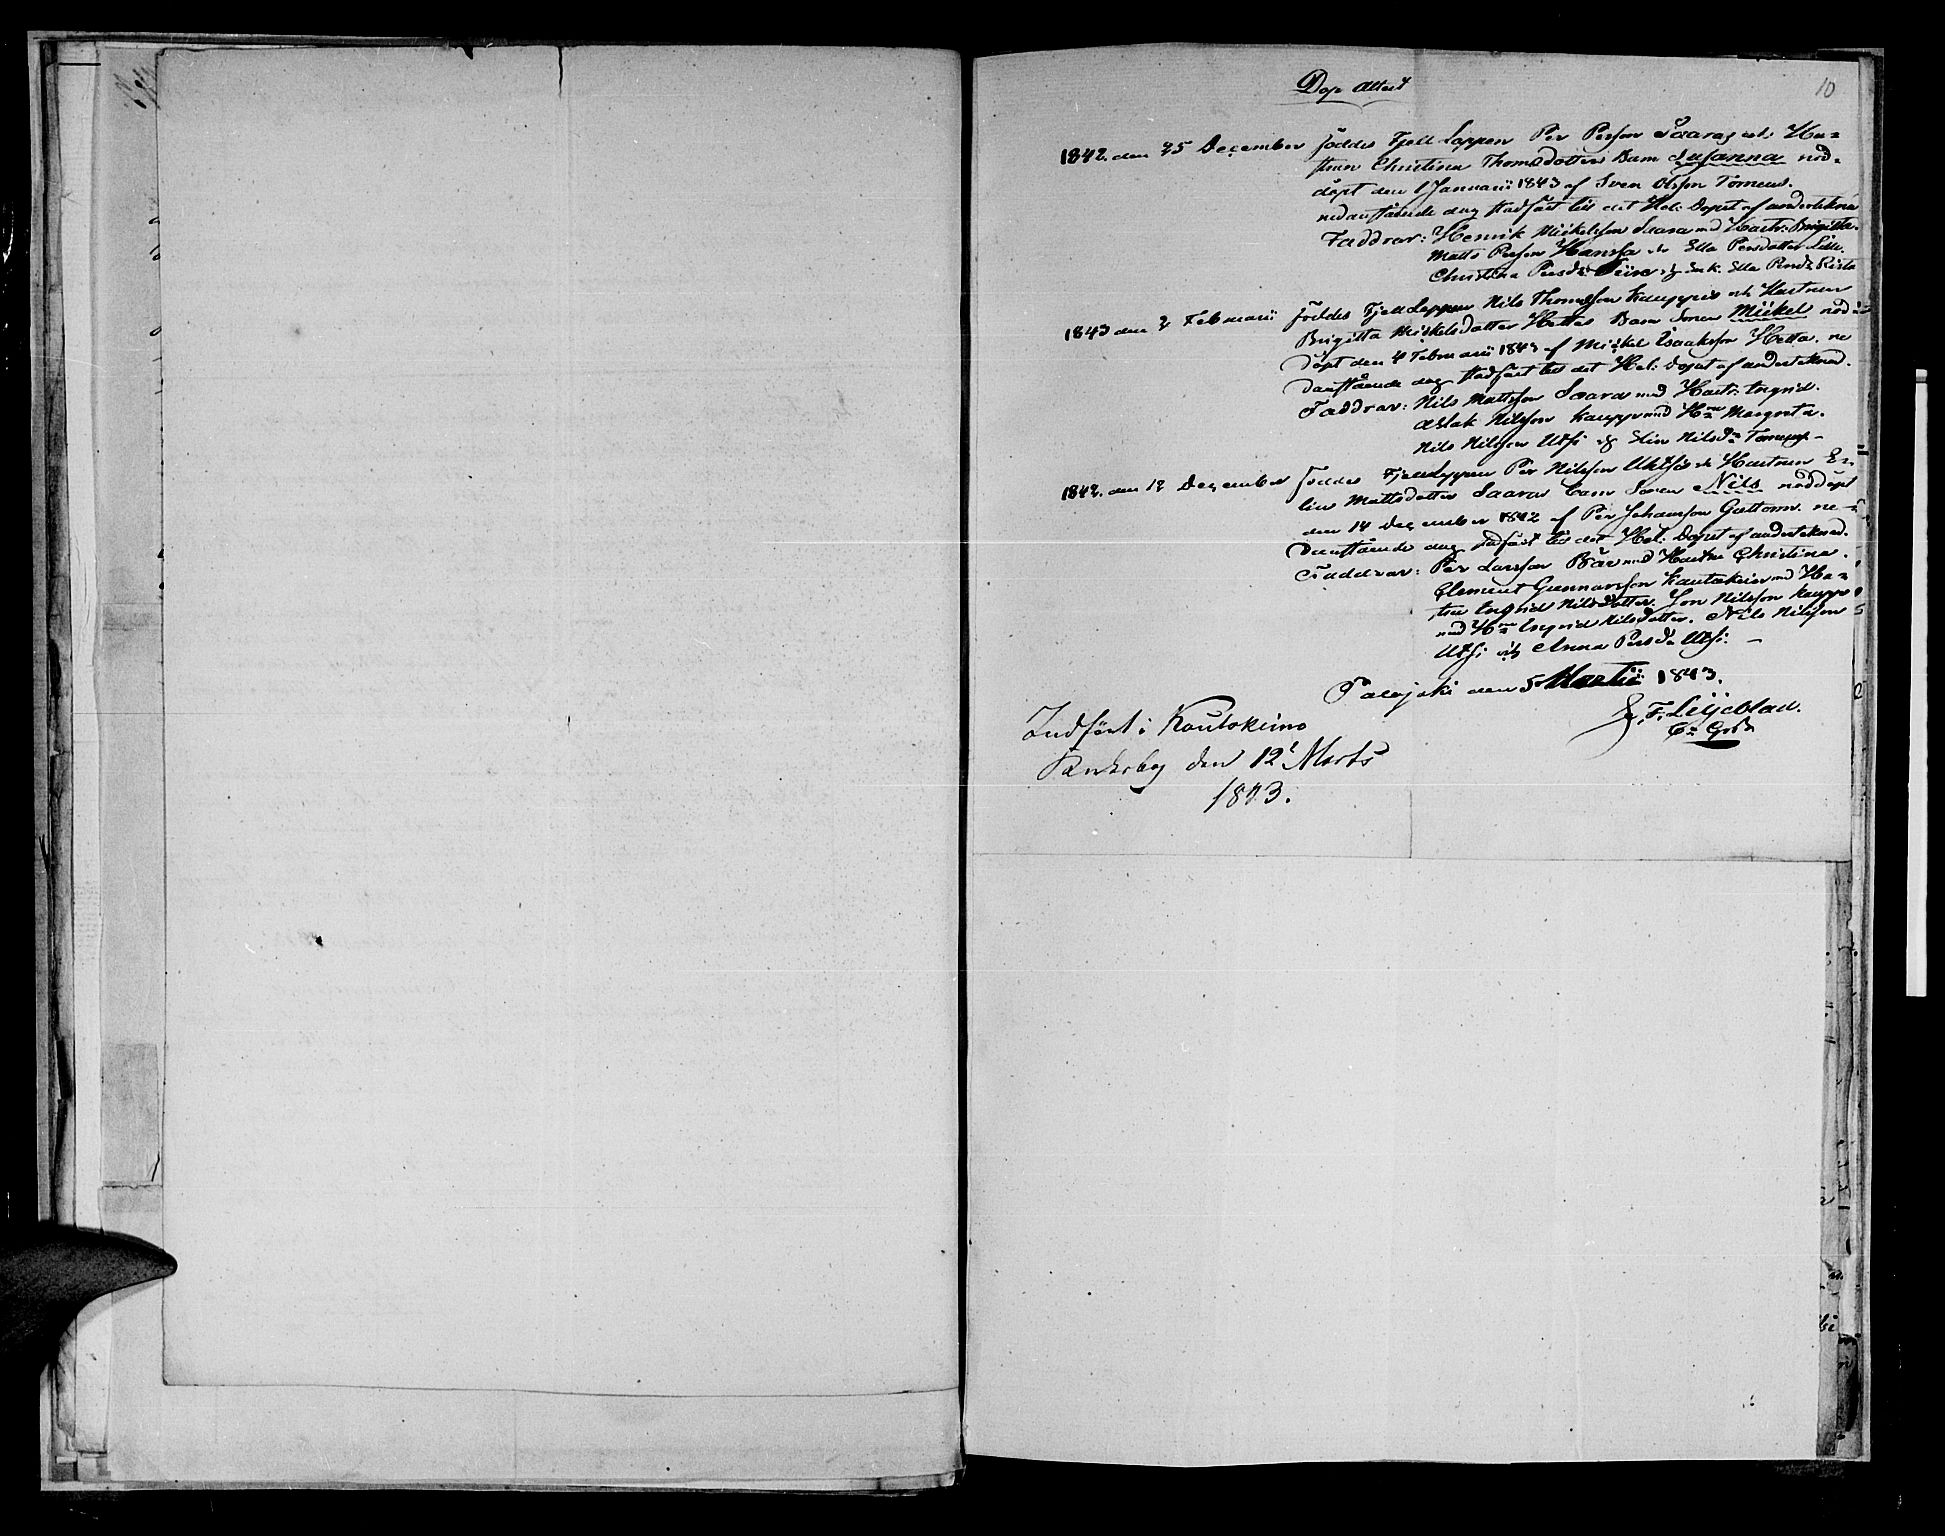 10
Dop Attest
1842. den 25 December föddes Fjell Lappen Per Persson Saaras och Hu=
strun Christina Thomsdotters Barn Susanna nöd=
döpt den 1 Januarii 1843 af Sven Olsson Tornens.
nedanstående dag stadfäst till det Hel: Dopet af undertekna
Faddrar: Henrik Mickelsson Saara med Hustr: Brigitta.
Matts Persson Hansa ok Ella Persdotter
Christina Persdr: ok Enk: Ella Persdr
1843 den 2 Februarii föddes Fjell Lappen Nils Thomasson Kauppis och Hustrun
Brigitta Mickelsdotter Hettas Barn Sonen Mickel nöd=
döpt den 4 Februarii 1843 af Mickel Isaaksson Hetta. ne
danstående dag stadfäst till det Hel: Dopet af underteknad.
Faddrar: Nils Mattsson Saara med Hustr: Ingrid.
Aslak Nilsson Kauppi med Hu Margreta.
Nils Nilsson Utsi och Elin Nilsdr
1842. den 12 December föddes Fjellappen Per Nilsson Uktsis ok Hustrun E=
lin Mattsdotter Saaras barn Sonen Nils nöddöpt
den 14 December 1842 af Per Johansson Guttorm. ne=
danstående dag stadfäst till det Hel: Dopet af underteknad.
Faddrar: Per Larsson Bär med Hustru Christina.
Clement Gunnarsson Kautokeino med Hu=
stru Ingrid Nilsdotter. Jon Nilsson Kauppi
med Hu Ingrid Nilsdotter. Nils Nilsson
Utsi och Anna Persdr Utsi.
Palojoki den 5 Martii 1843.
F. Liljeblad.
Indført i Koutokeino
Kirkebog den 12t Marts
1843.